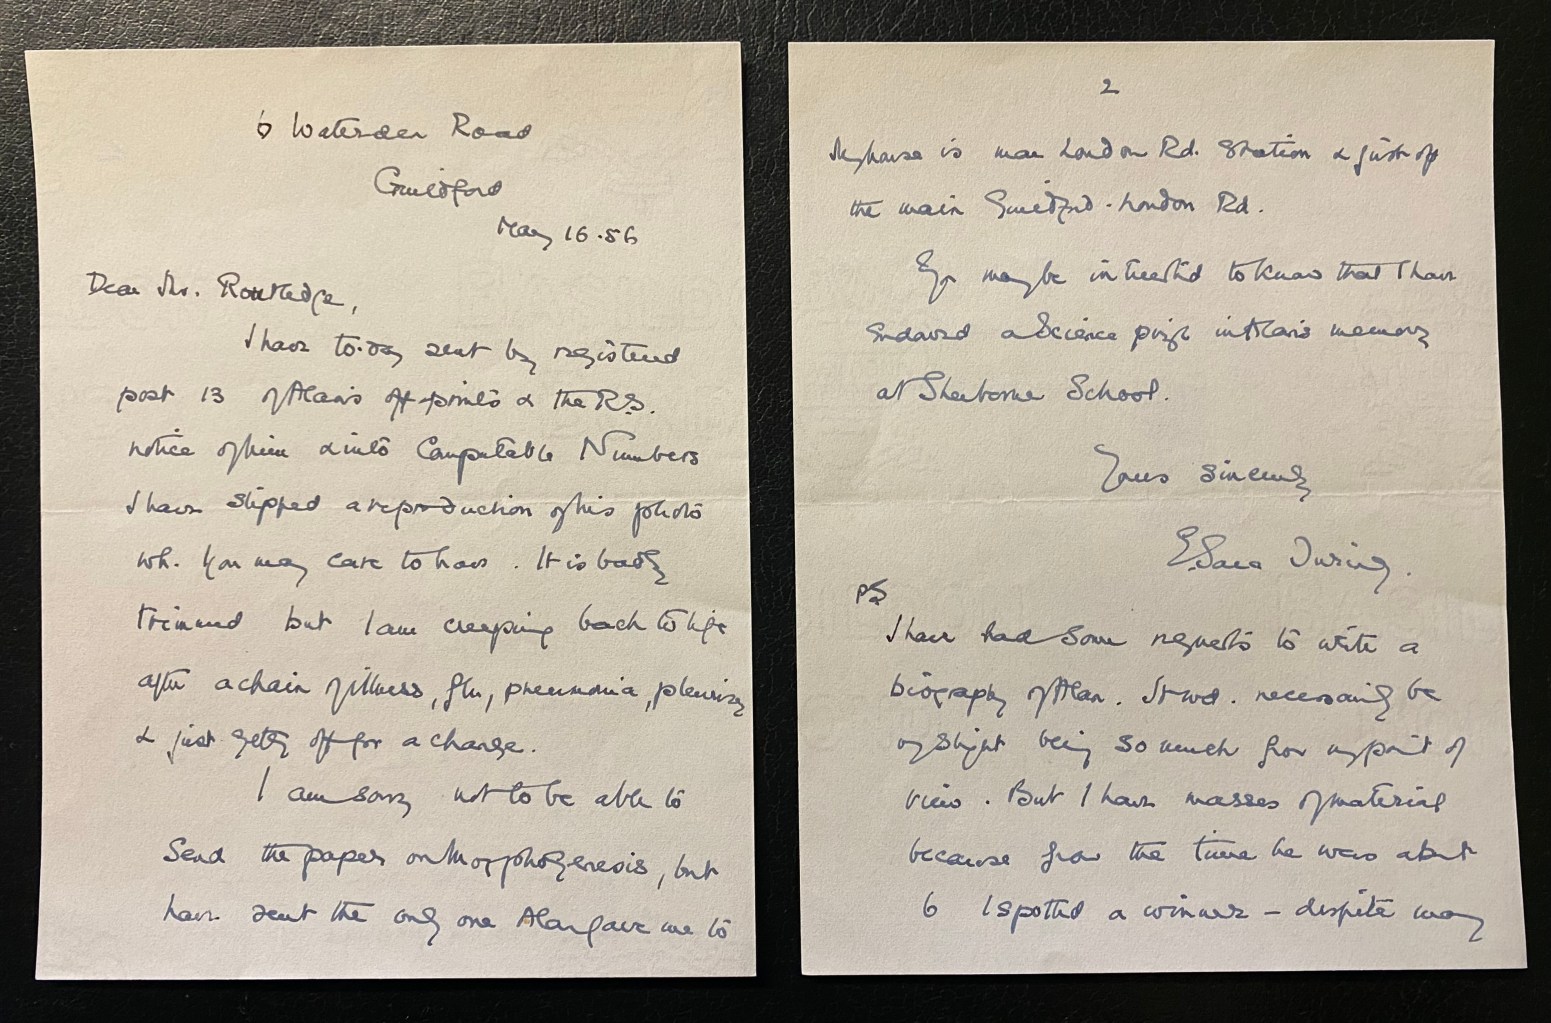 6 Waterden Road
Guildford
May 16.56
Dear Mr. Routledge,
I have to-day sent by registered
post 13 of Alan's off-prints & the R.S.
notice of him & into Computable Numbers
I have slipped a reproduction of his photo
wh. you may care to have. It is badly
trimmed but I am creeping back to life
after a chain of illness, flu, pneumonia, pleurisy
& just getting off for a change.
I am sorry not to be able to
send the paper on Morphogenesis, but
have sent the only one Alan gave me to
2
My house is near London Rd. Station & just off
the main Guildford-London Rd.
You may be interested to know that I have
endowed a Science prize in Alan's memory
at Sherborne School.
Yours sincerely
E. Sara Turing.
PS
I have had some requests to write a
biography of Alan. It wd. necessarily be
slight being so much from my point of
view. But I have masses of material
because from the time he was about
6 I spotted a winner – despite many